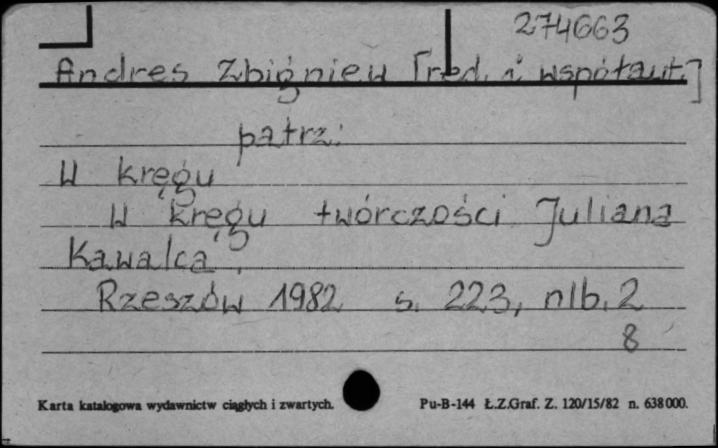 274663
Andres Zbigniew [red. i współaut.]
patrz:
W kręgu
W kręgu twórczości Juliana
Kawalca.
Rzeszów 1982 s. 223, nlb. 2
8
Karta katalogowa wydawnictw ciągłych i zwartych. Pu-B-144 Ł.Z.Graf. Z. 120/15/82 n. 638000.